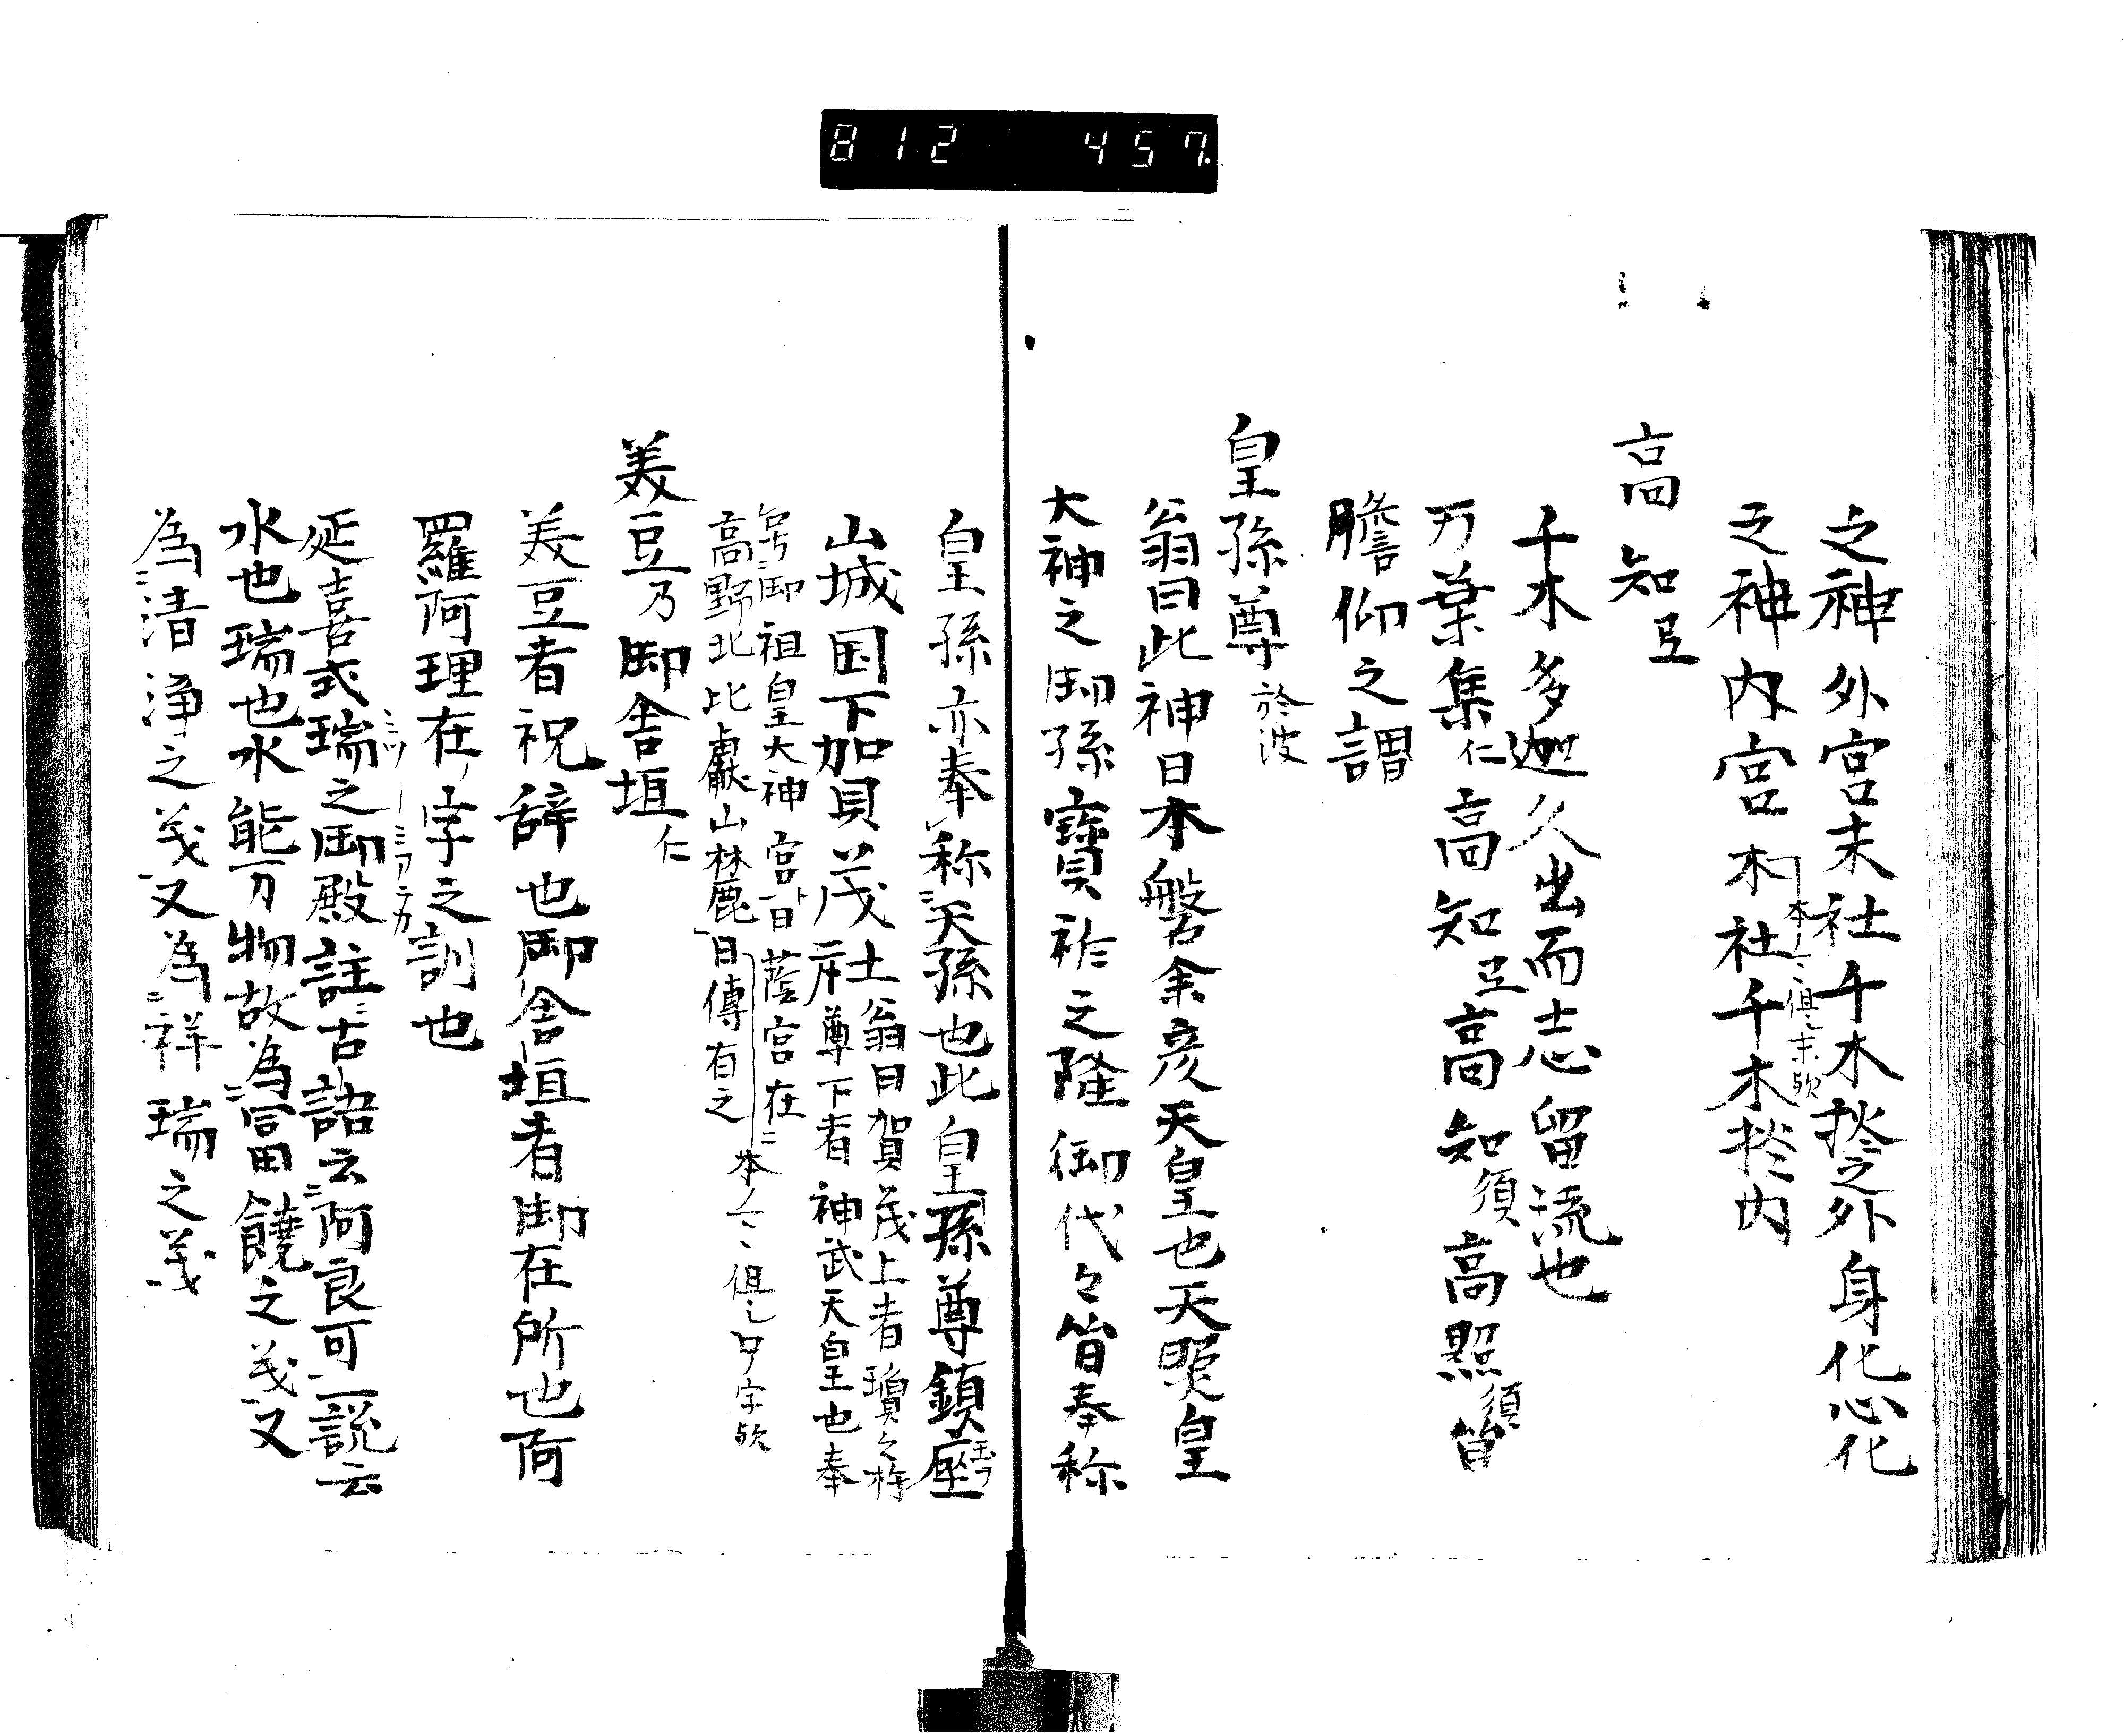 812 457.
之神外宮末社千木捴之外身化心化
本ノマヽ但末歟
之神内宮木社千木捴内
高知弖
千木多迦久出而志留流也
万葉集仁高知弖高知須高照須皆
瞻仰之謂
皇孫尊於波
翁曰此神日本磐余彦天皇也天照皇
大神之御孫寶祚之隆御代々皆奉称
皇孫亦奉称天孫也此皇孫尊鎮座
山城国下加賀茂社翁曰賀茂上者瓊々杵
尊下者神武天皇也奉
号御祖皇大神宮日蔭宮在
高野北比叡山林麓日傳有之
本ノマヽ但之字歟
美豆乃御舎垣仁
美豆者祝辞也御舎垣者御在所也阿
羅阿理在字之訓也
延喜式瑞之御殿註古語云阿良可説云
水也瑞也水能万物故為冨饒之義又
為清浄之義又為祥瑞之義